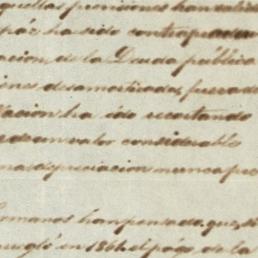 aquellas pensiones han salido
paz ha sido contrapuesta
cion, de la Deuda pública
ines desamortizados, fuera de
Nacion ha ido recortando
de un valor considerable
depreciacion nunca
omanos han pensado, que, si
arregló en 1864 el pago de la